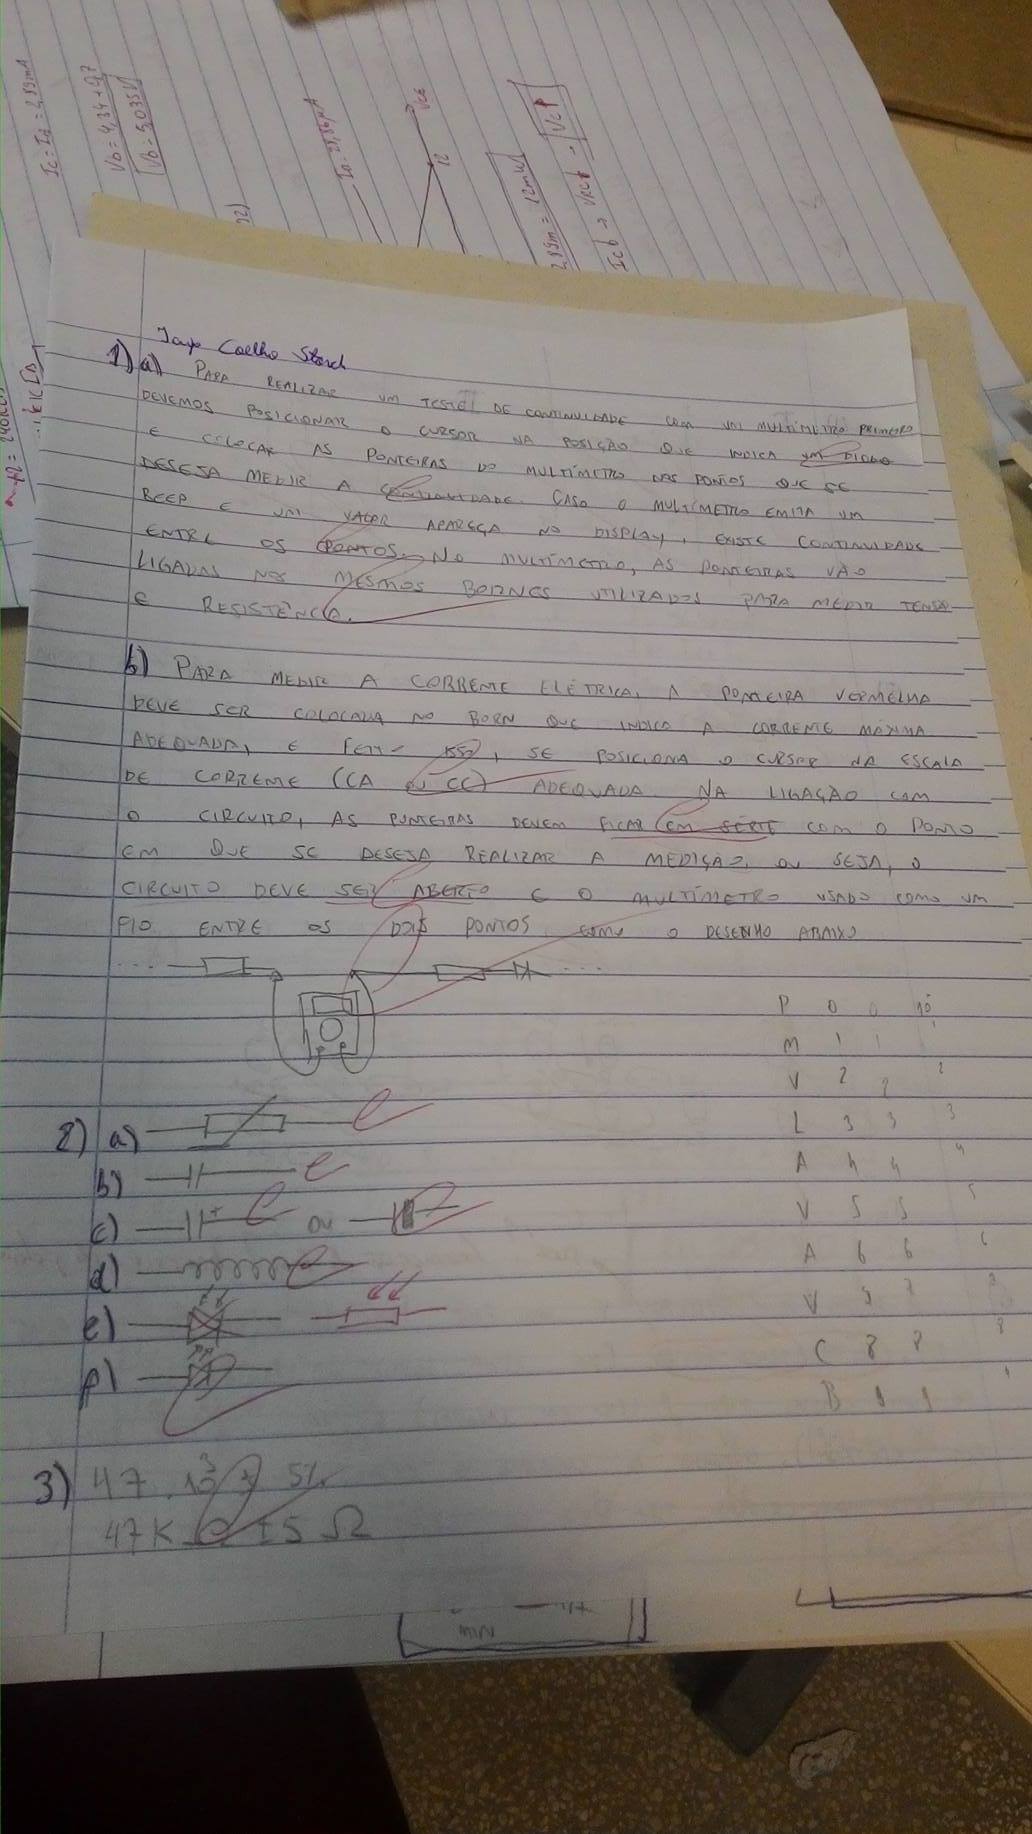 Ic = 2,89mA
Vb = 4,34+0,7
Vb = 5,035V
VCE
2,89m = 12mW
VCP
Coelho Storch
1) a) PARA REALIZAR UM TESTE DE CONTINUIDADE COM UM MULTÍMETRO PRIMEIRO
DEVEMOS POSICIONAR O CURSOR NA POSIÇÃO QUE INDICA UM DIODO
E COLOCAR AS PONTEIRAS DO MULTÍMETRO NOS PONTOS QUE SE
DESEJA MEDIR A CONTINUIDADE. CASO O MULTÍMETRO EMITA UM
BEEP E UM VALOR APAREÇA NO DISPLAY, EXISTE CONTINUIDADE
ENTRE OS PONTOS. NO MULTÍMETRO, AS PONTEIRAS VÃO
LIGADAS NOS MESMOS BORNES UTILIZADOS PARA MEDIR TENSÃO
E RESISTÊNCIA.
b) PARA MEDIR A CORRENTE ELÉTRICA, A PONTEIRA VERMELHA
DEVE SER COLOCADA NO BORN QUE INDICA A CORRENTE MÁXIMA
ADEQUADA, E FEITO ISSO, SE POSICIONA O CURSOR NA ESCALA
DE CORRENTE (CA OU CC) ADEQUADA. NA LIGAÇÃO COM
O CIRCUITO, AS PONTEIRAS DEVEM FICAR EM SÉRIE COM O PONTO
EM QUE SE DESEJA REALIZAR A MEDIÇÃO, OU SEJA, O
CIRCUITO DEVE SER ABERTO E O MULTÍMETRO USADO COMO UM
FIO ENTRE OS DOIS PONTOS COMO O DESENHO ABAIXO
P 0 0
M 1 1
V 2 2 2
L 3 3 3
A 4 4 4
V 5 5 5
A 6 6 6
V 7
C 8 8 8
B
2) a)
b)
c) + OU
d)
e)
f)
3) 47 . 10³ ± 5%
47K Ω ±5 Ω
MIN